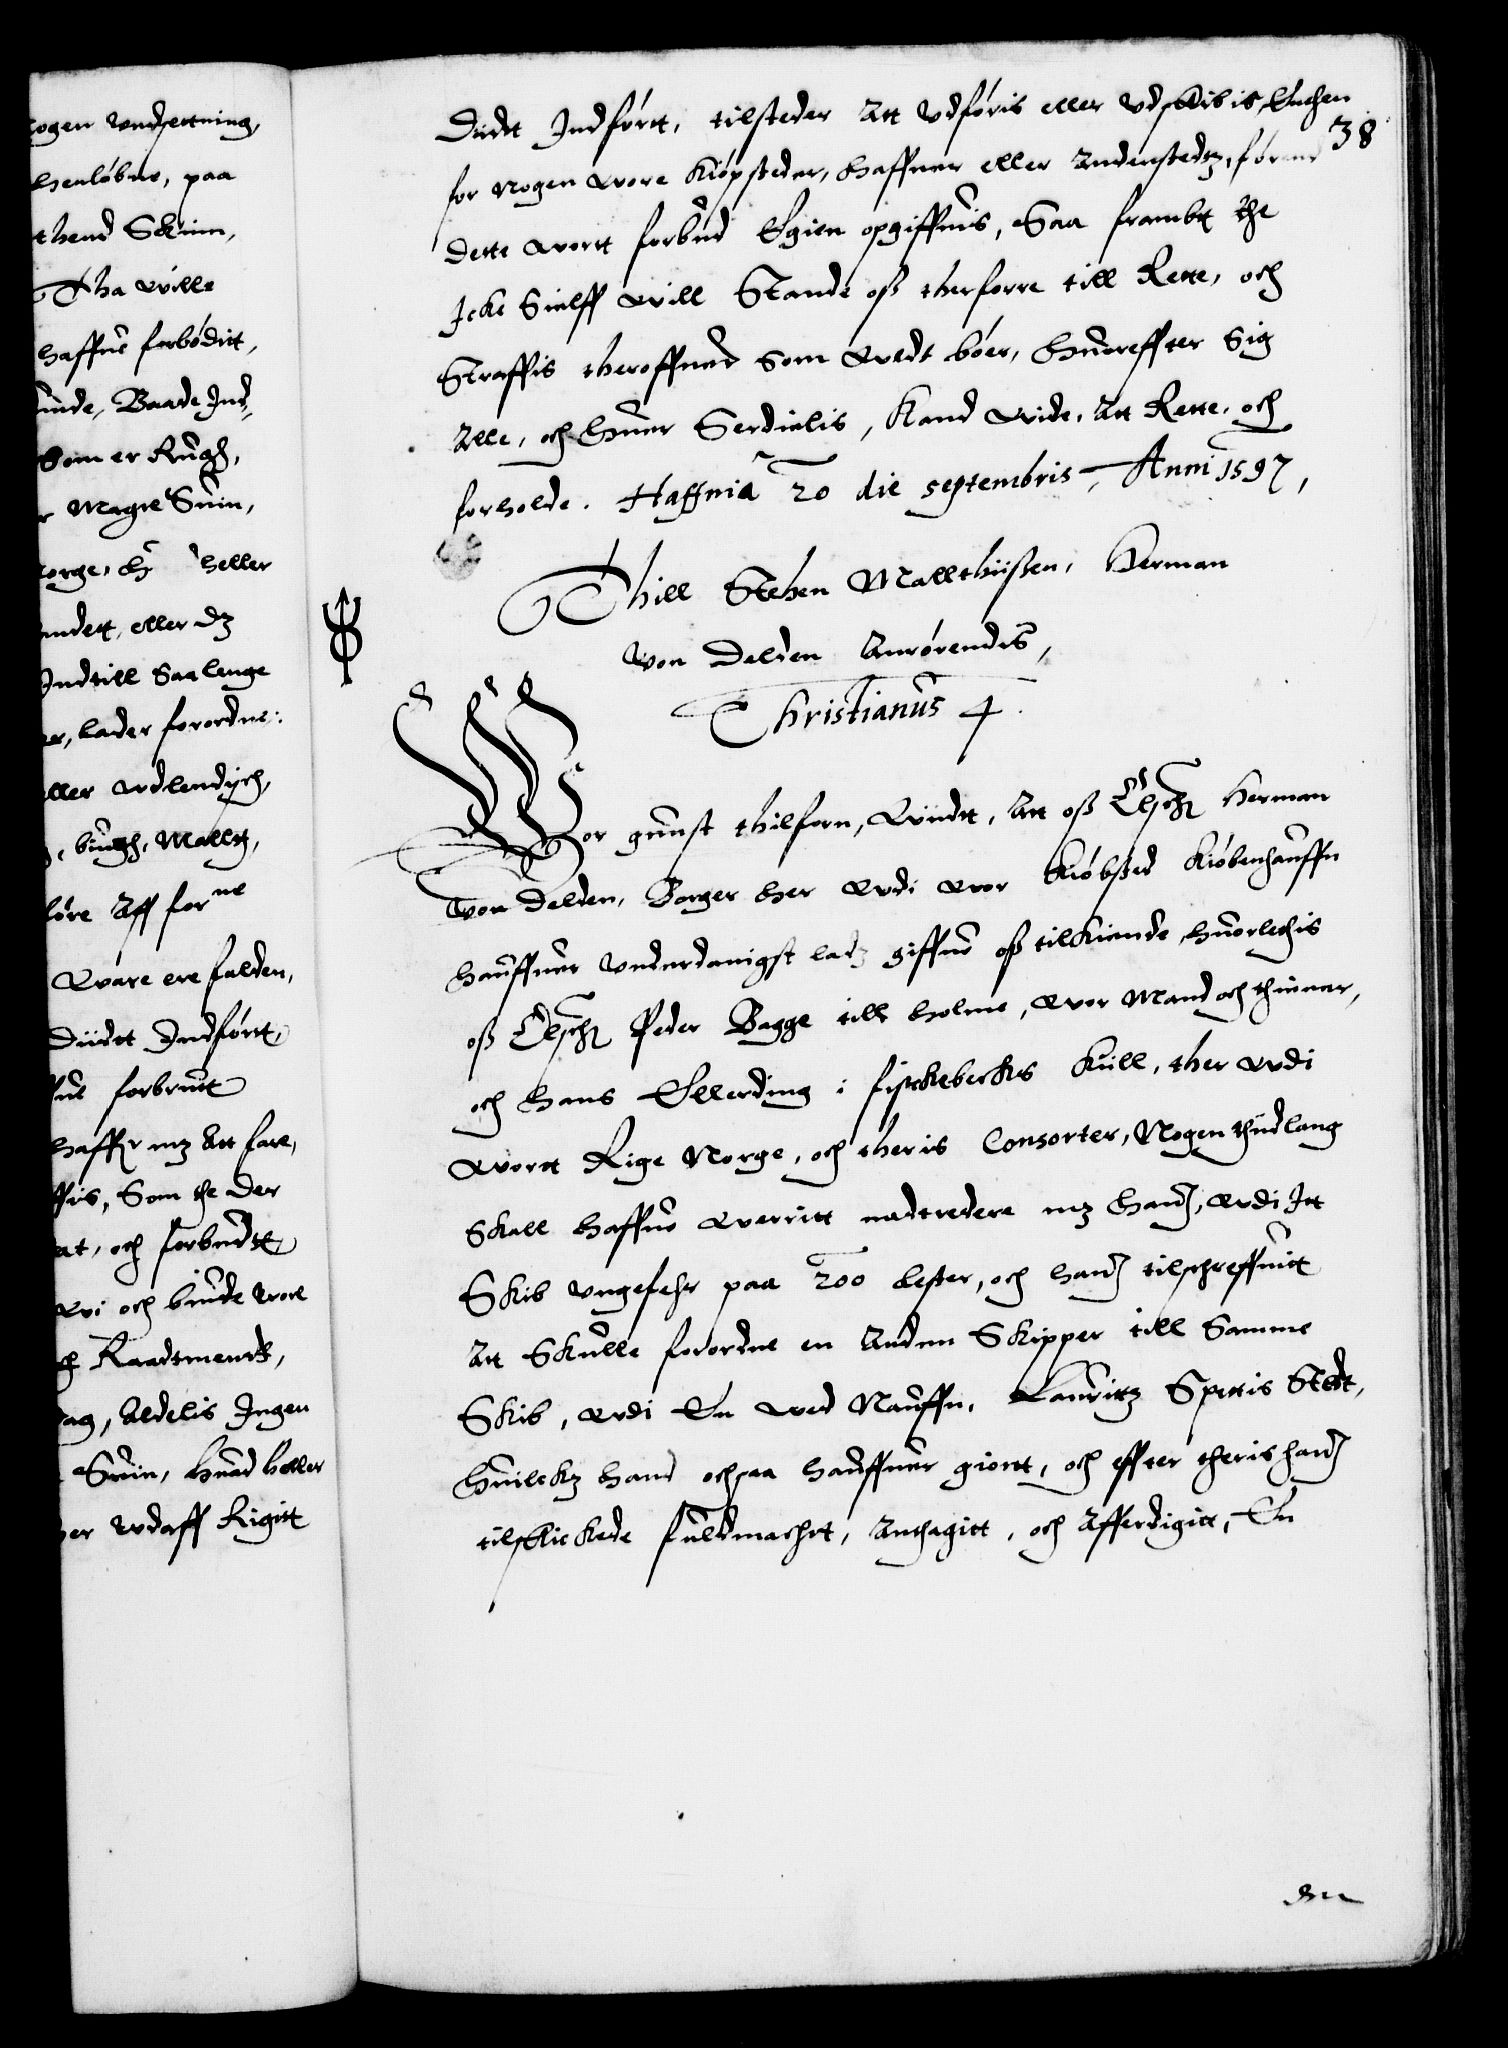 ogen Undsettning,
henløbne, paa
thend Skiin,
Tha wille
haffue forbøditt,
unde, Baade Ind,
Som er Rugh,
r Magre Suin,
orge, heller
undett, eller dz
Indtill Saa lenge
er, lader forordne:
eller wdlendisch,
biugh, Maltt,
føre Aff forne
Vare ere falden,
Diidtt Indførtt,
ue forbrutt
haffr mz Att fare,
ffis, Som the der
at, och forbudtt
wi och biude wore
h Raadtmendt,
dag, Aldelis Ingen
Suin, huad heller
her wdaff Rigitt
38
Diidtt Indførtt, tilsteder Att Udføris eller Udskibis, Enthen
for Nogen wore Kiøpsteder, Haffner eller Andenstedtz, førend
dette wortt forbud Igien opgiffuis, Saa frambt the
Icke Siælff will Stande oß therforre till Rette, och
Straffis theroffuer Som wedt bøer, Huoreffter Sig
Alle, och Huer Serdielis, Kand vide, Att Rette, och
forholde. Haffniæ 20 die septembris, Anni 1597,
Thill Stehen Mallthiißen, Herman
von Delden Anrørendis,
Christianus 4.
Wor gunst thilforn, Viidtt, Att oß Elsche Herman
von Delden, Borger her Udi wor Kiøbsted Kiøbenhauffn
hauffuer underdanigst ladz giffue oß tilkiende, huorledis
oß Elsche Peder Bagge till holme, wor Mand och thiener,
och Hans Ellerding i fisckebecks Kiill, ther Udi
wortt Rige Norge, och theris Consorter, Nogen thiidlang
Skall haffue werritt medredere mz hand, Udi Itt
Skib ungefehr paa 200 lester, och hand tilschreffuitt
Att Skulle forordne en Anden Skipper till Samme
Skib, Udi En wed Nauffn, Lauritz Spettis Stedt,
huilckz hand ochsaa hauffuer giortt, och effter theris hand
tilskickede fuldmachtt, Anthagitt, och Afferdigitt, En